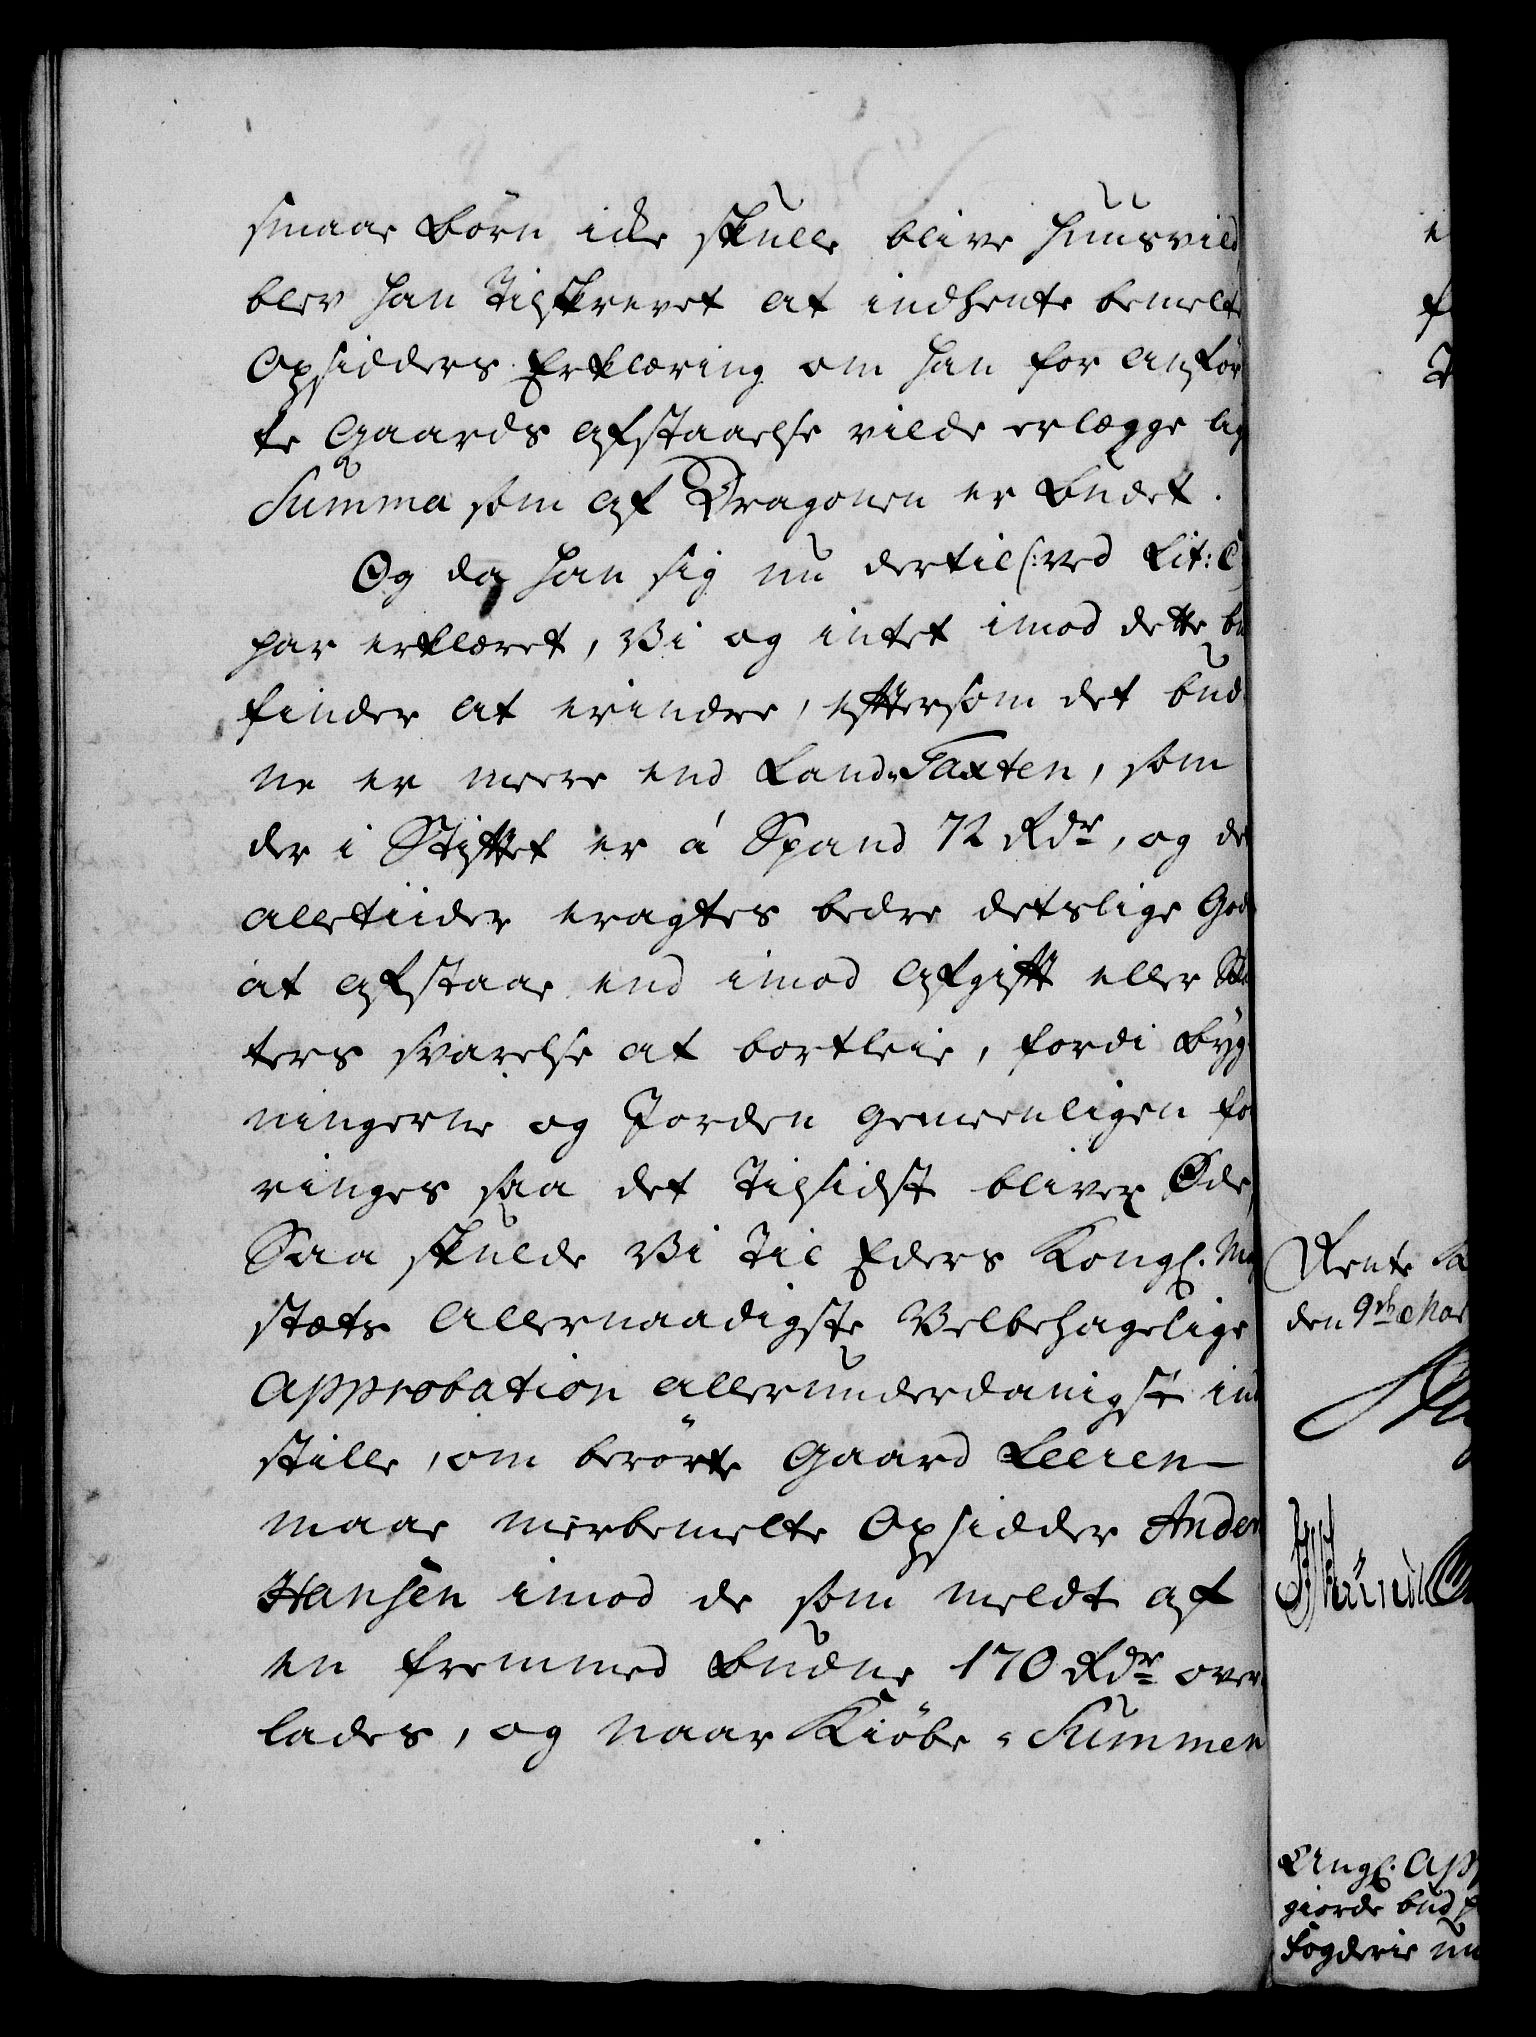 smaae Børn icke skulle blive huusvild
blev han Tilskrevet at indhente bemelte
Opsidders Erklæring om han for anför
te Gaards afstaaelse vilde erlægge lig
Summa som af Dragonen er budet.
Og da han sig nu dertil (: ved Lit: C
har erklæret, Vi og intet imod dette bu
finder at erindre, efftersom det bud
ne er meere end Lands Taxten, som
der i Stifftet er á Spand 72 Rdr, og det
alletiider eragtes bedre detslige Gods
at afstaae end imod Afgifft eller Skat
ters svarelse at bortleie, fordi Byg
ningerne og Jorden gemeenligen for
ringes saa det Tilsidst bliver Øde,
Saa skulde Vi Til Eders Kongl. Maj
stæts Allernaadigste Velbehagelige
Approbation allerunderdanigst ind
stille, om berørte Gaard Leeren
maae meerbemelte Opsidder Anders
Hansen imod de som meldt af
en fremmed budne 170 Rdr over
lades, og naar Kiøbe-Summen
e
f
T
Rente Ka
den 9de Mar
Angl. App
giorde bud f
Fogderie un